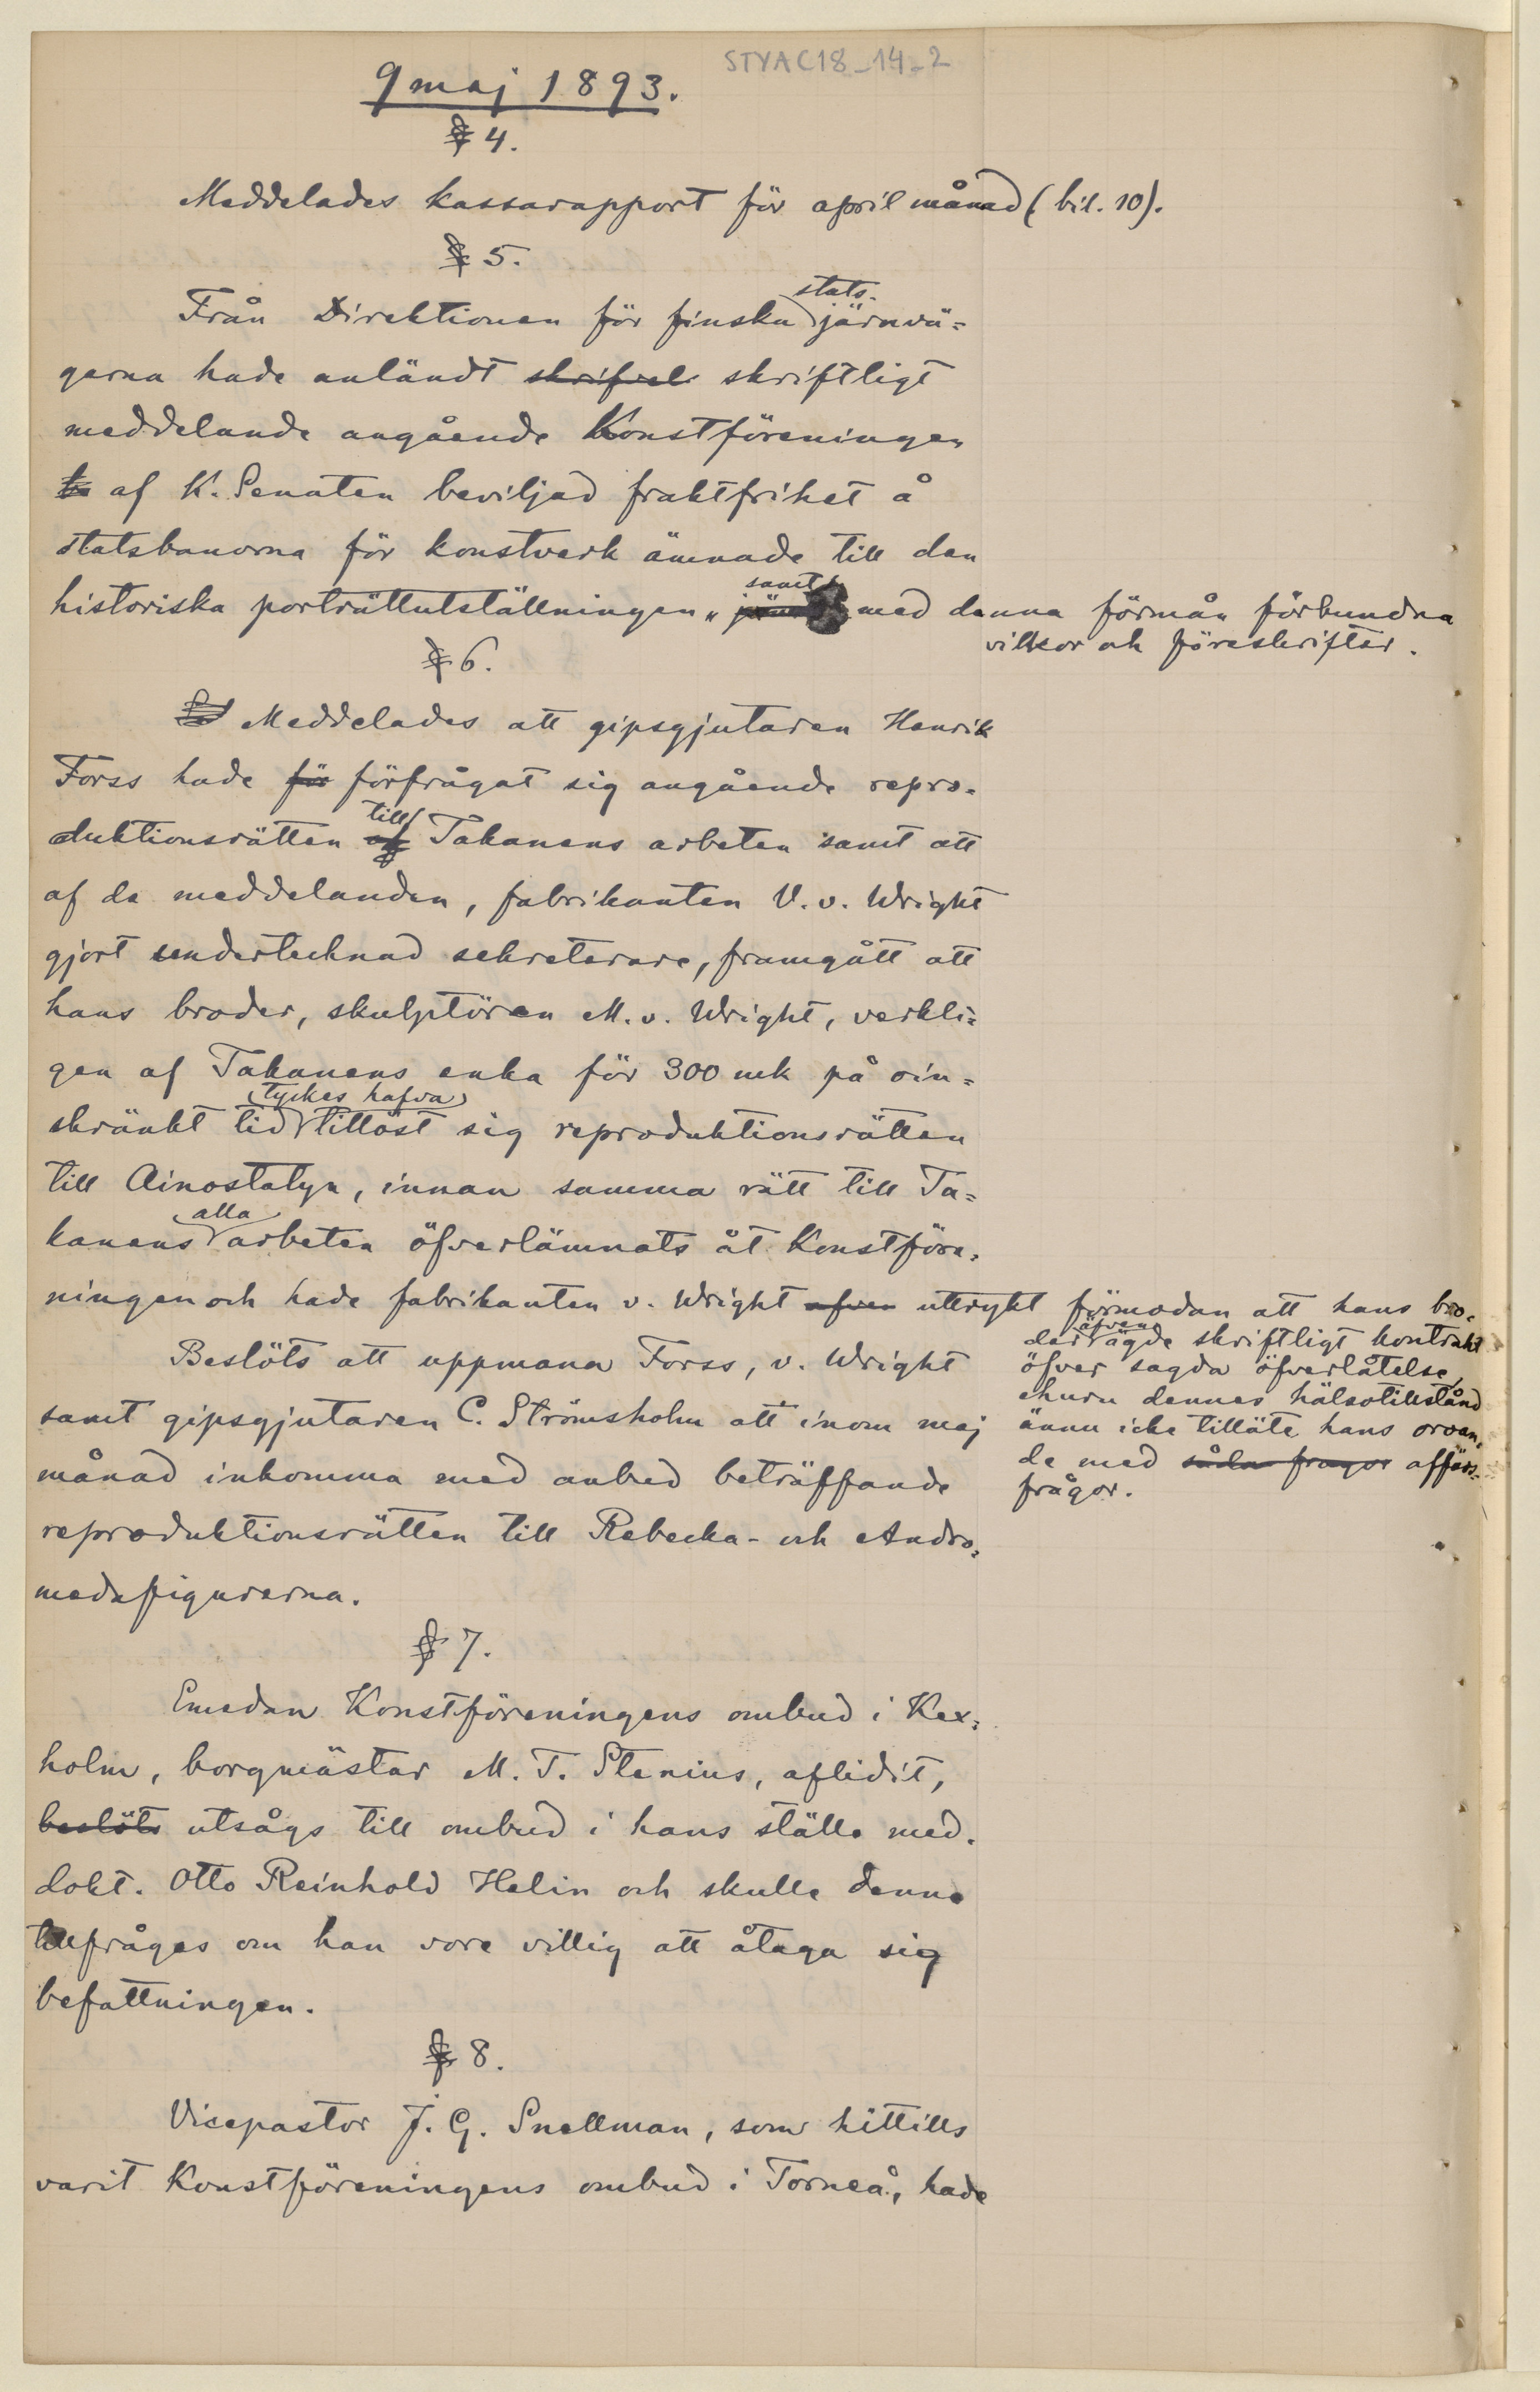 STYAC18_14_2
9 maj 1893.
§ 4.
Meddelades kassarapport för april månad (bil. 10).
§ 5.
stats-
Från Direktionen för finska järnvä=
garna hade anländt skrifvel skriftligt
meddelande angående Konstföreningen
af K. Senaten beviljad fraktfrihet å
statsbanorna för konstverk ämnade till den
samt
historiska porträttutställningen, med denna förmån förbundna
vilkor och föreskrifter.
§ 6.
Meddelades att gipsgjutaren Henrik
Forss hade för förfrågat sig angående repro=
till
duktionsrätten af Takanens arbeten samt att
af de meddelanden, fabrikanten V. v. Wright
gjort undertecknad sekreterare, framgått att
hans broder, skulptören M. v. Wright, verkli=
gen af Takanens enka för 300 mk på oin=
tyckes hafva
skränkt tid tillöst sig reproduktionsrätten
till Ainostatyn, innan samma rätt till Ta=
alla
kanens arbeten öfverlämnats åt Konstföre=
ningen och hade fabrikanten v. Wright afven uttrykt förmodan att hans bro=
äfven
der ägde skriftligt kontrakt
öfver sagda öfverlåtelse,
ehuru dennes hälsotillstånd
ännu icke tilläte hans oroan=
de med sådan fragor affärs=
frågor.
Beslöts att uppmana Forss, v. Wright
samt gipsgjutaren C. Strömsholm att inom maj
månad inkomma med anbud beträffande
reproduktionsrätten till Rebecka- och Andro=
medafigurerna.
§ 7.
Emedan Konstföreningens ombud i Kex=
holm, borgmästar M. T. Stenius, aflidit,
beslöts utsågs till ombud i hans ställe med.
dokt. Otto Reinhold Helin och skulle denne
tillfråges om han vore villig att åtaga sig
befattningen.
§ 8.
Vicepastor J. G. Snellman, som hittills
varit Konstföreningens ombud i Torneå, hade